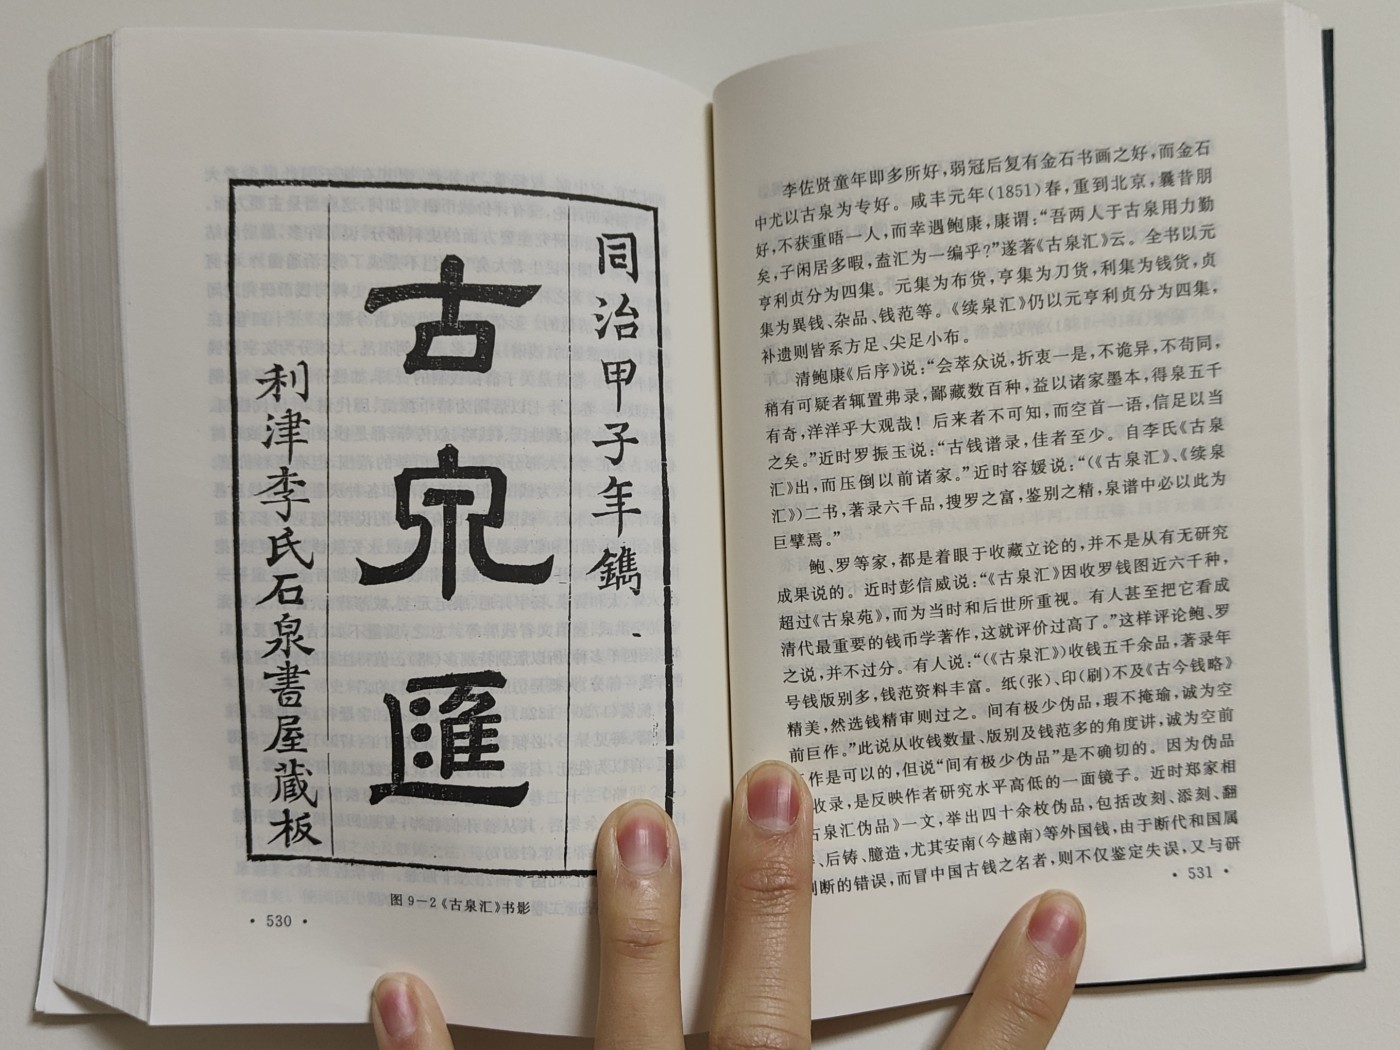 同治甲子年鐫
古泉匯
利津李氏石泉書屋藏板
图 9-2《古泉汇》书影
· 530 ·
李佐贤童年即多所好，弱冠后复有金石书画之好，而金石
中尤以古泉为专好。咸丰元年(1851)春，重到北京，曩昔朋
好，不获重晤一人，而幸遇鲍康，康谓：“吾两人于古泉用力勤
矣，子闲居多暇，盍汇为一编乎？”遂著《古泉汇》云。全书以元
亨利贞分为四集。元集为布货，亨集为刀货，利集为钱货，贞
集为異钱、杂品、钱范等。《续泉汇》仍以元亨利贞分为四集，
补遗则皆系方足、尖足小布。
清鲍康《后序》说：“会萃众说，折衷一是，不诡异，不苟同，
稍有可疑者辄置弗录，鄙藏数百种，益以诸家墨本，得泉五千
有奇，洋洋乎大观哉！后来者不可知，而空首一语，信足以当
之矣。”近时罗振玉说：“古钱谱录，佳者至少。自李氏《古泉
汇》出，而压倒以前诸家。”近时容媛说：“(《古泉汇》、《续泉
汇》)二书，著录六千品，搜罗之富，鉴别之精，泉谱中必以此为
巨擘焉。”
鲍、罗等家，都是着眼于收藏立论的，并不是从有无研究
成果说的。近时彭信威说：“《古泉汇》因收罗钱图近六千种，
超过《古泉苑》，而为当时和后世所重视。有人甚至把它看成
清代最重要的钱币学著作，这就评价过高了。”这样评论鲍、罗
之说，并不过分。有人说：“(《古泉汇》)收钱五千余品，著录年
号钱版别多，钱范资料丰富。纸(张)、印(刷)不及《古今钱略》
精美，然选钱精审则过之。间有极少伪品，瑕不掩瑜，诚为空
前巨作。”此说从收钱数量、版别及钱范多的角度讲，诚为空前
作是可以的，但说“间有极少伪品”是不确切的。因为伪品
收录，是反映作者研究水平高低的一面镜子。近时郑家相
古泉汇伪品》一文，举出四十余枚伪品，包括改刻、添刻、翻
、后铸、臆造，尤其安南(今越南)等外国钱，由于断代和国属
判断的错误，而冒中国古钱之名者，则不仅鉴定失误，又与研
· 531 ·